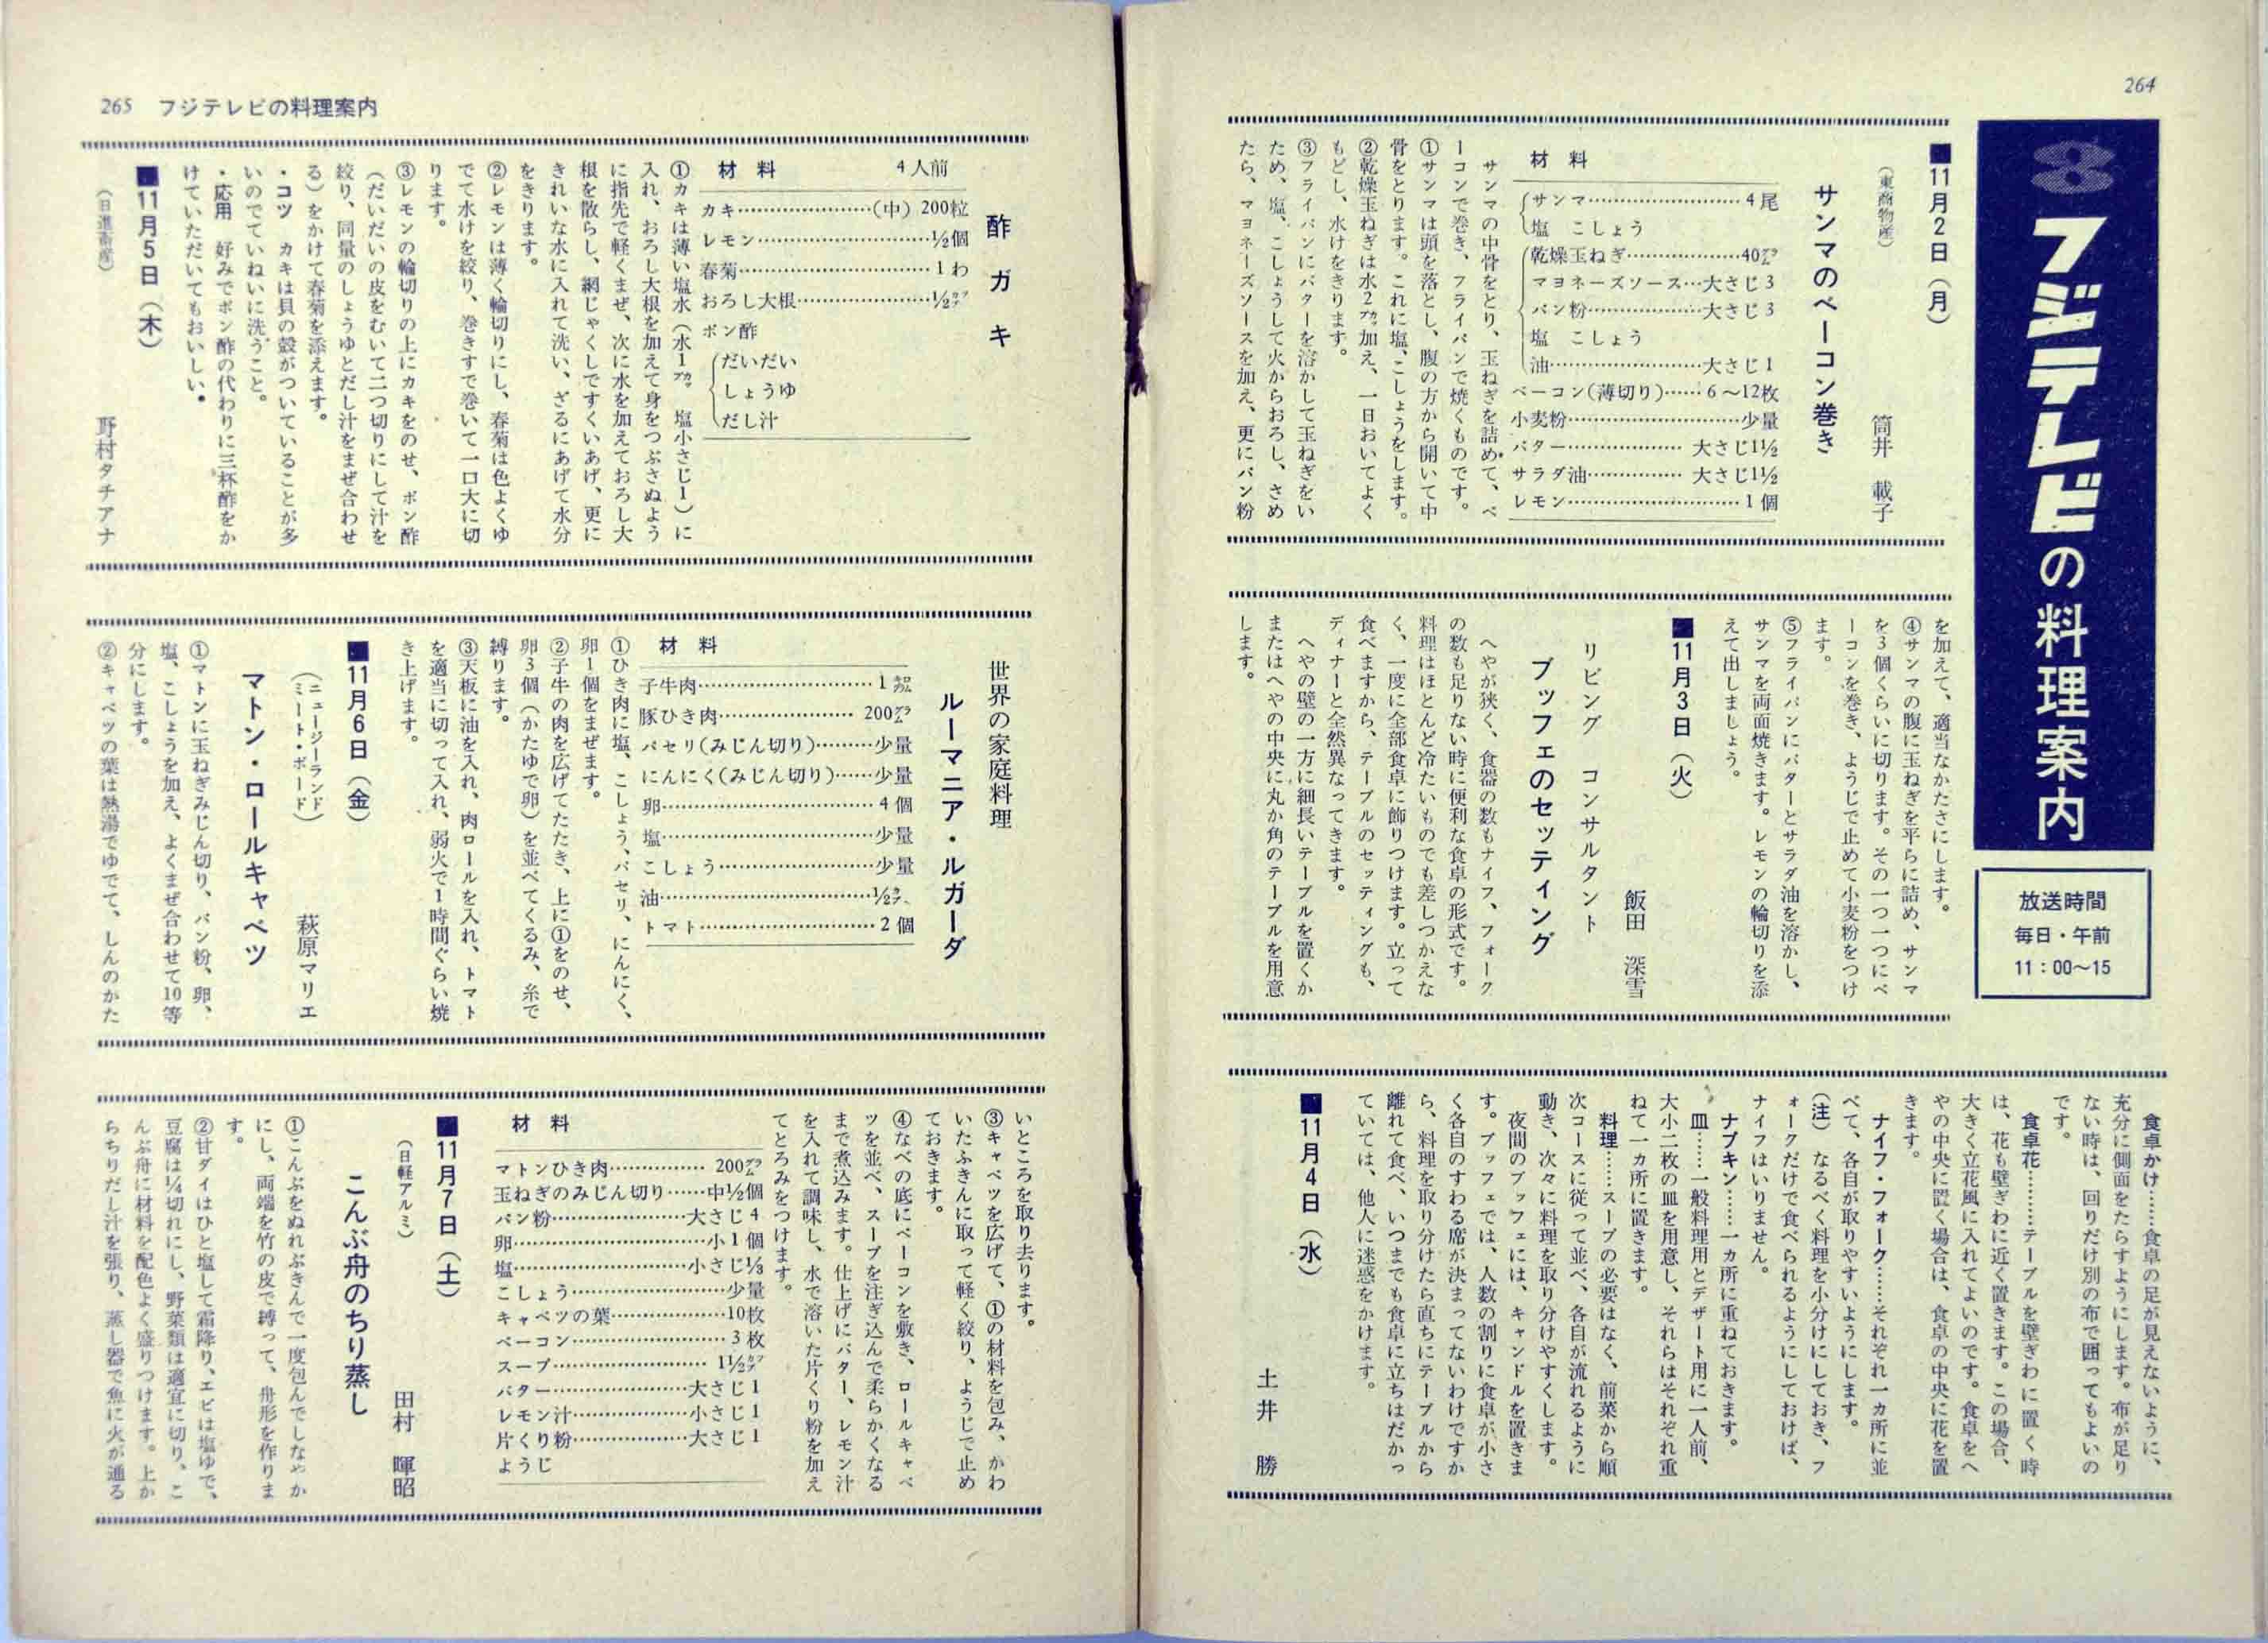 264
8
フジテレビの料理案内
放送時間
毎日・午前
11：00〜15
■11月2日（月）
（東商物産）
筒井　載子
サンマのベーコン巻き
材　料
サンマ………………4尾
塩　こしょう
乾燥玉ねぎ………………40グラム
マヨネーズソース…大さじ3
パン粉………………大さじ3
塩　こしょう
油………………大さじ1
ベーコン(薄切り)……6〜12枚
小麦粉………………少量
バター………………大さじ1½
サラダ油………………大さじ1½
レモン………………1個
サンマの中骨をとり、玉ねぎを詰めて、ベ
ーコンで巻き、フライパンで焼くものです。
①サンマは頭を落とし、腹の方から開いて中
骨をとります。これに塩、こしょうをします。
②乾燥玉ねぎは水2カップ加え、一日おいてよく
もどし、水けをきります。
③フライパンにバターを溶かして玉ねぎをい
ため、塩、こしょうして火からおろし、さめ
たら、マヨネーズソースを加え、更にパン粉
を加えて、適当なかたさにします。
④サンマの腹に玉ねぎを平らに詰め、サンマ
を3個くらいに切ります。その一つ一つにベ
ーコンを巻き、ようじで止めて小麦粉をつけ
ます。
⑤フライパンにバターとサラダ油を溶かし、
サンマを両面焼きます。レモンの輪切りを添
えて出しましょう。
■11月3日（火）
飯田　深雪
リビング　コンサルタント
ブッフェのセッティング
へやが狭く、食器の数もナイフ、フォーク
の数も足りない時に便利な食卓の形式です。
料理はほとんど冷たいものでも差しつかえな
く、一度に全部食卓に飾りつけます。立って
食べますから、テーブルのセッティングも、
ディナーと全然異なってきます。
へやの壁の一方に細長いテーブルを置くか
またはへやの中央に丸か角のテーブルを用意
します。
食卓かけ……食卓の足が見えないように、
充分に側面をたらすようにします。布が足り
ない時は、回りだけ別の布で囲ってもよいの
です。
食卓花………テーブルを壁ぎわに置く時
は、花も壁ぎわに近く置きます。この場合、
大きく立花風に入れてよいのです。食卓をへ
やの中央に置く場合は、食卓の中央に花を置
きます。
ナイフ・フォーク……それぞれ一カ所に並
べて、各自が取りやすいようにします。
（注）　なるべく料理を小分けにしておき、フ
ォークだけで食べられるようにしておけば、
ナイフはいりません。
ナプキン……一カ所に重ねておきます。
皿……一般料理用とデザート用に一人前、
大小二枚の皿を用意し、それらはそれぞれ重
ねて一カ所に置きます。
料理……スープの必要はなく、前菜から順
次コースに従って並べ、各自が流れるように
動き、次々に料理を取り分けやすくします。
夜間のブッフェには、キャンドルを置きま
す。ブッフェでは、人数の割りに食卓が小さ
く各自のすわる席が決まってないわけですか
ら、料理を取り分けたら直ちにテーブルから
離れて食べ、いつまでも食卓に立ちはだかっ
ていては、他人に迷惑をかけます。
■11月4日（水）
土井　勝
265　フジテレビの料理案内
酢ガキ
材　料　4人前
カキ………………(中) 200粒
レモン………………½個
春菊………………1わ
おろし大根………………½カップ
ポン酢
だいだい
しょうゆ
だし汁
①カキは薄い塩水（水1カップ　塩小さじ1）に
入れ、おろし大根を加えて身をつぶさぬよう
に指先で軽くまぜ、次に水を加えておろし大
根を散らし、網じゃくしですくいあげ、更に
きれいな水に入れて洗い、ざるにあげて水分
をきります。
②レモンは薄く輪切りにし、春菊は色よくゆ
でて水けを絞り、巻きすで巻いて一口大に切
ります。
③レモンの輪切りの上にカキをのせ、ポン酢
（だいだいの皮をむいて二つ切りにして汁を
絞り、同量のしょうゆとだし汁をまぜ合わせ
る）をかけて春菊を添えます。
・コツ　カキは貝の殻がついていることが多
いのでていねいに洗うこと。
・応用　好みでポン酢の代わりに三杯酢をか
けていただいてもおいしい。
■11月5日（木）
（日進畜産）
野村タチアナ
世界の家庭料理
ルーマニア・ルガーダ
材　料
子牛肉………………1キロ
豚ひき肉………………200グラム
パセリ(みじん切り)………少量
にんにく(みじん切り)……少量
卵………………4個
塩………………少量
こしょう………………少量
油………………½カップ
トマト………………2個
①ひき肉に塩、こしょう、パセリ、にんにく、
卵1個をまぜます。
②子牛の肉を広げてたたき、上に①をのせ、
卵3個（かたゆで卵）を並べてくるみ、糸で
縛ります。
③天板に油を入れ、肉ロールを入れ、トマト
を適当に切って入れ、弱火で1時間ぐらい焼
き上げます。
■11月6日（金）
（ニュージーランド
ミート・ボード）
萩原マリエ
マトン・ロールキャベツ
①マトンに玉ねぎみじん切り、パン粉、卵、
塩、こしょうを加え、よくまぜ合わせて10等
分にします。
②キャベツの葉は熱湯でゆでて、しんのかた
いところを取り去ります。
③キャベツを広げて、①の材料を包み、かわ
いたふきんに取って軽く絞り、ようじで止め
ておきます。
④なべの底にベーコンを敷き、ロールキャベ
ツを並べ、スープを注ぎ込んで柔らかくなる
まで煮込みます。仕上げにバター、レモン汁
を入れて調味し、水で溶いた片くり粉を加え
てとろみをつけます。
材　料
マトンひき肉………………200グラム
玉ねぎのみじん切り……中½個
パン粉………………大さじ4
卵………………小1個
塩………………小さじ⅓
こしょう………………少量
キャベツの葉………………10枚
ベーコン………………3枚
スープ………………1½カップ
バター………………大さじ1
レモン汁………………小さじ1
片くり粉………………大さじ1
ようじ
■11月7日（土）
（日軽アルミ）
田村　暉昭
こんぶ舟のちり蒸し
①こんぶをぬれぶきんで一度包んでしなやか
にし、両端を竹の皮で縛って、舟形を作りま
す。
②甘ダイはひと塩して霜降り、エビは塩ゆで、
豆腐は¼切れにし、野菜類は適宜に切り、こ
んぶ舟に材料を配色よく盛りつけます。上か
らちりだし汁を張り、蒸し器で魚に火が通る